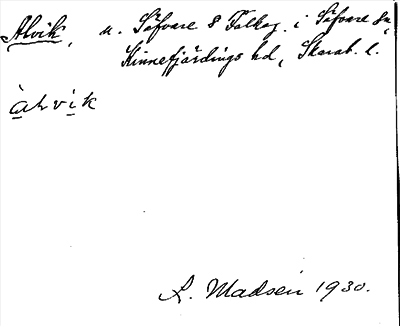 Alvik, u. Säfvare 8 Falkeg. i Säfvare sn,
Kinnefjärdings hd, Skarab. l.
àlvik
L. Madsén 1930.